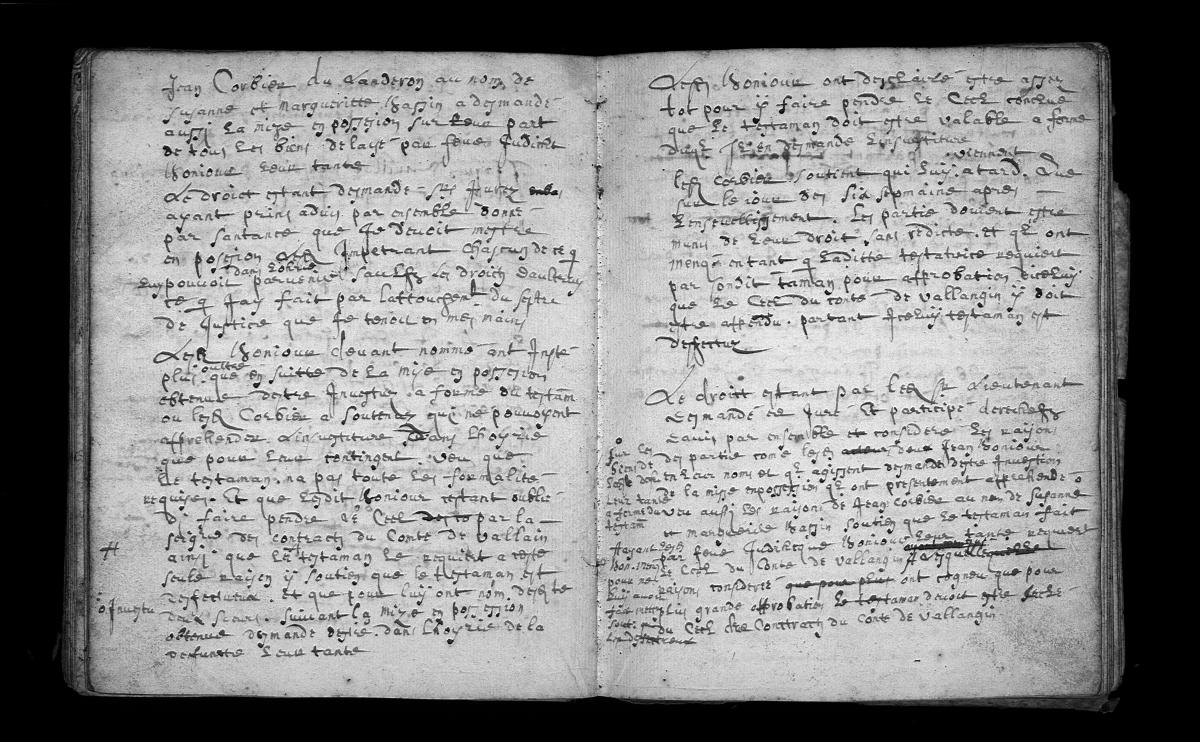 Jean Corbier du Landeron au nom de
Susanne et Margueritte Bassin a desmandé
aussi la mise en possesion sur leur part
de tous les biens delaisé par feue Judicht
Bonjour leur tante
Le droict estant desmandé Srs Jurez
ayant prins aduis par ensemble donné
par santance que Je deuoit mestre
en posesion Impetrant chascun de ce q
dans
luy pouuoit paruenir saulfz les droictz daultruy
ce q Jay fait par lattouchemt du septre
de Justice que Je tenoit en mes mains
Lesdt Bonjour deuant nommé ont Insté
oultre
plus que en suitte de la mise en possesion
obtenue destre Inuestus a forme du testam
ou ledt Corbier a soutenu quil ne pouuoyent
apprehender Linuestiture dans Lhoyrie
que pour leur contingent veu que
le testaman na pas toute les formalité
requises. Et que lesdit Bonjour estant oublié
di faire pendre le Ceel par la
seigne des contracts du Comte de Vallain
ainsi que le testaman le requiert a ceste
seule raison y soutien que le testaman est
desfectueux. et que pour luy ont nom desdte
deux seurs. suiuant la mise en possesion
o Inuestu
obtenue desmande destre dans Lhoyrie de la
defuncte leur tante
Lesdt Bonjour ont desclairé estre asser
tot pour y faire pendre le Ceel conclue
que le testaman doit estre valable a forme
diceluy en desmande Linuestiture
viennent
ledt Corbier soutient quil luy. atard. Que
sur le jour des six sepmaine apres
Lenseuellissement. Les partie douient estre
munis de leur droit sans redicte. et quil ont
menqué entant q laditte testatrice requiert
par sondit taman pour approbation diceluy
que le Ceel du conté de Vallangin y doit
estre appendu. partant Iceluy testaman est
desfectueux
Le droict estant par ledt Sr Lieutenant
desmandé es Jurez Et participé derechefz
dauis par ensemble et consideré les raisons
des partie come lesdt Jean Bonjour
en leur noms et quil agissent desmande destre Inuestion
de la mise en possesion quil ont presentement apprehendé o
veu aussi les raisons de Jean Corbier au nom de Susanne
et marguerite Bassin soutien que le testaman fait
par feue Judicque Bonjour leur tante requiert
le Ceel du Conte de vallangin
raisons consideréé que pour plus ont cogneu que pour
plus grande approbation le testaman deuoit estre scellé
du Ceel des Conttracts du Conte de Vallangin
o
sur les
biens de
leur tante
a forme du
testam